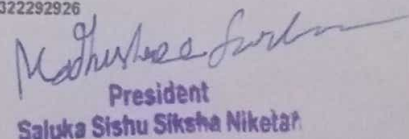 322292926
President
Saluka Sishu Siksha Niketan